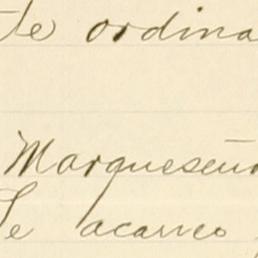 te ordina
Marqueseño
Se acarreo